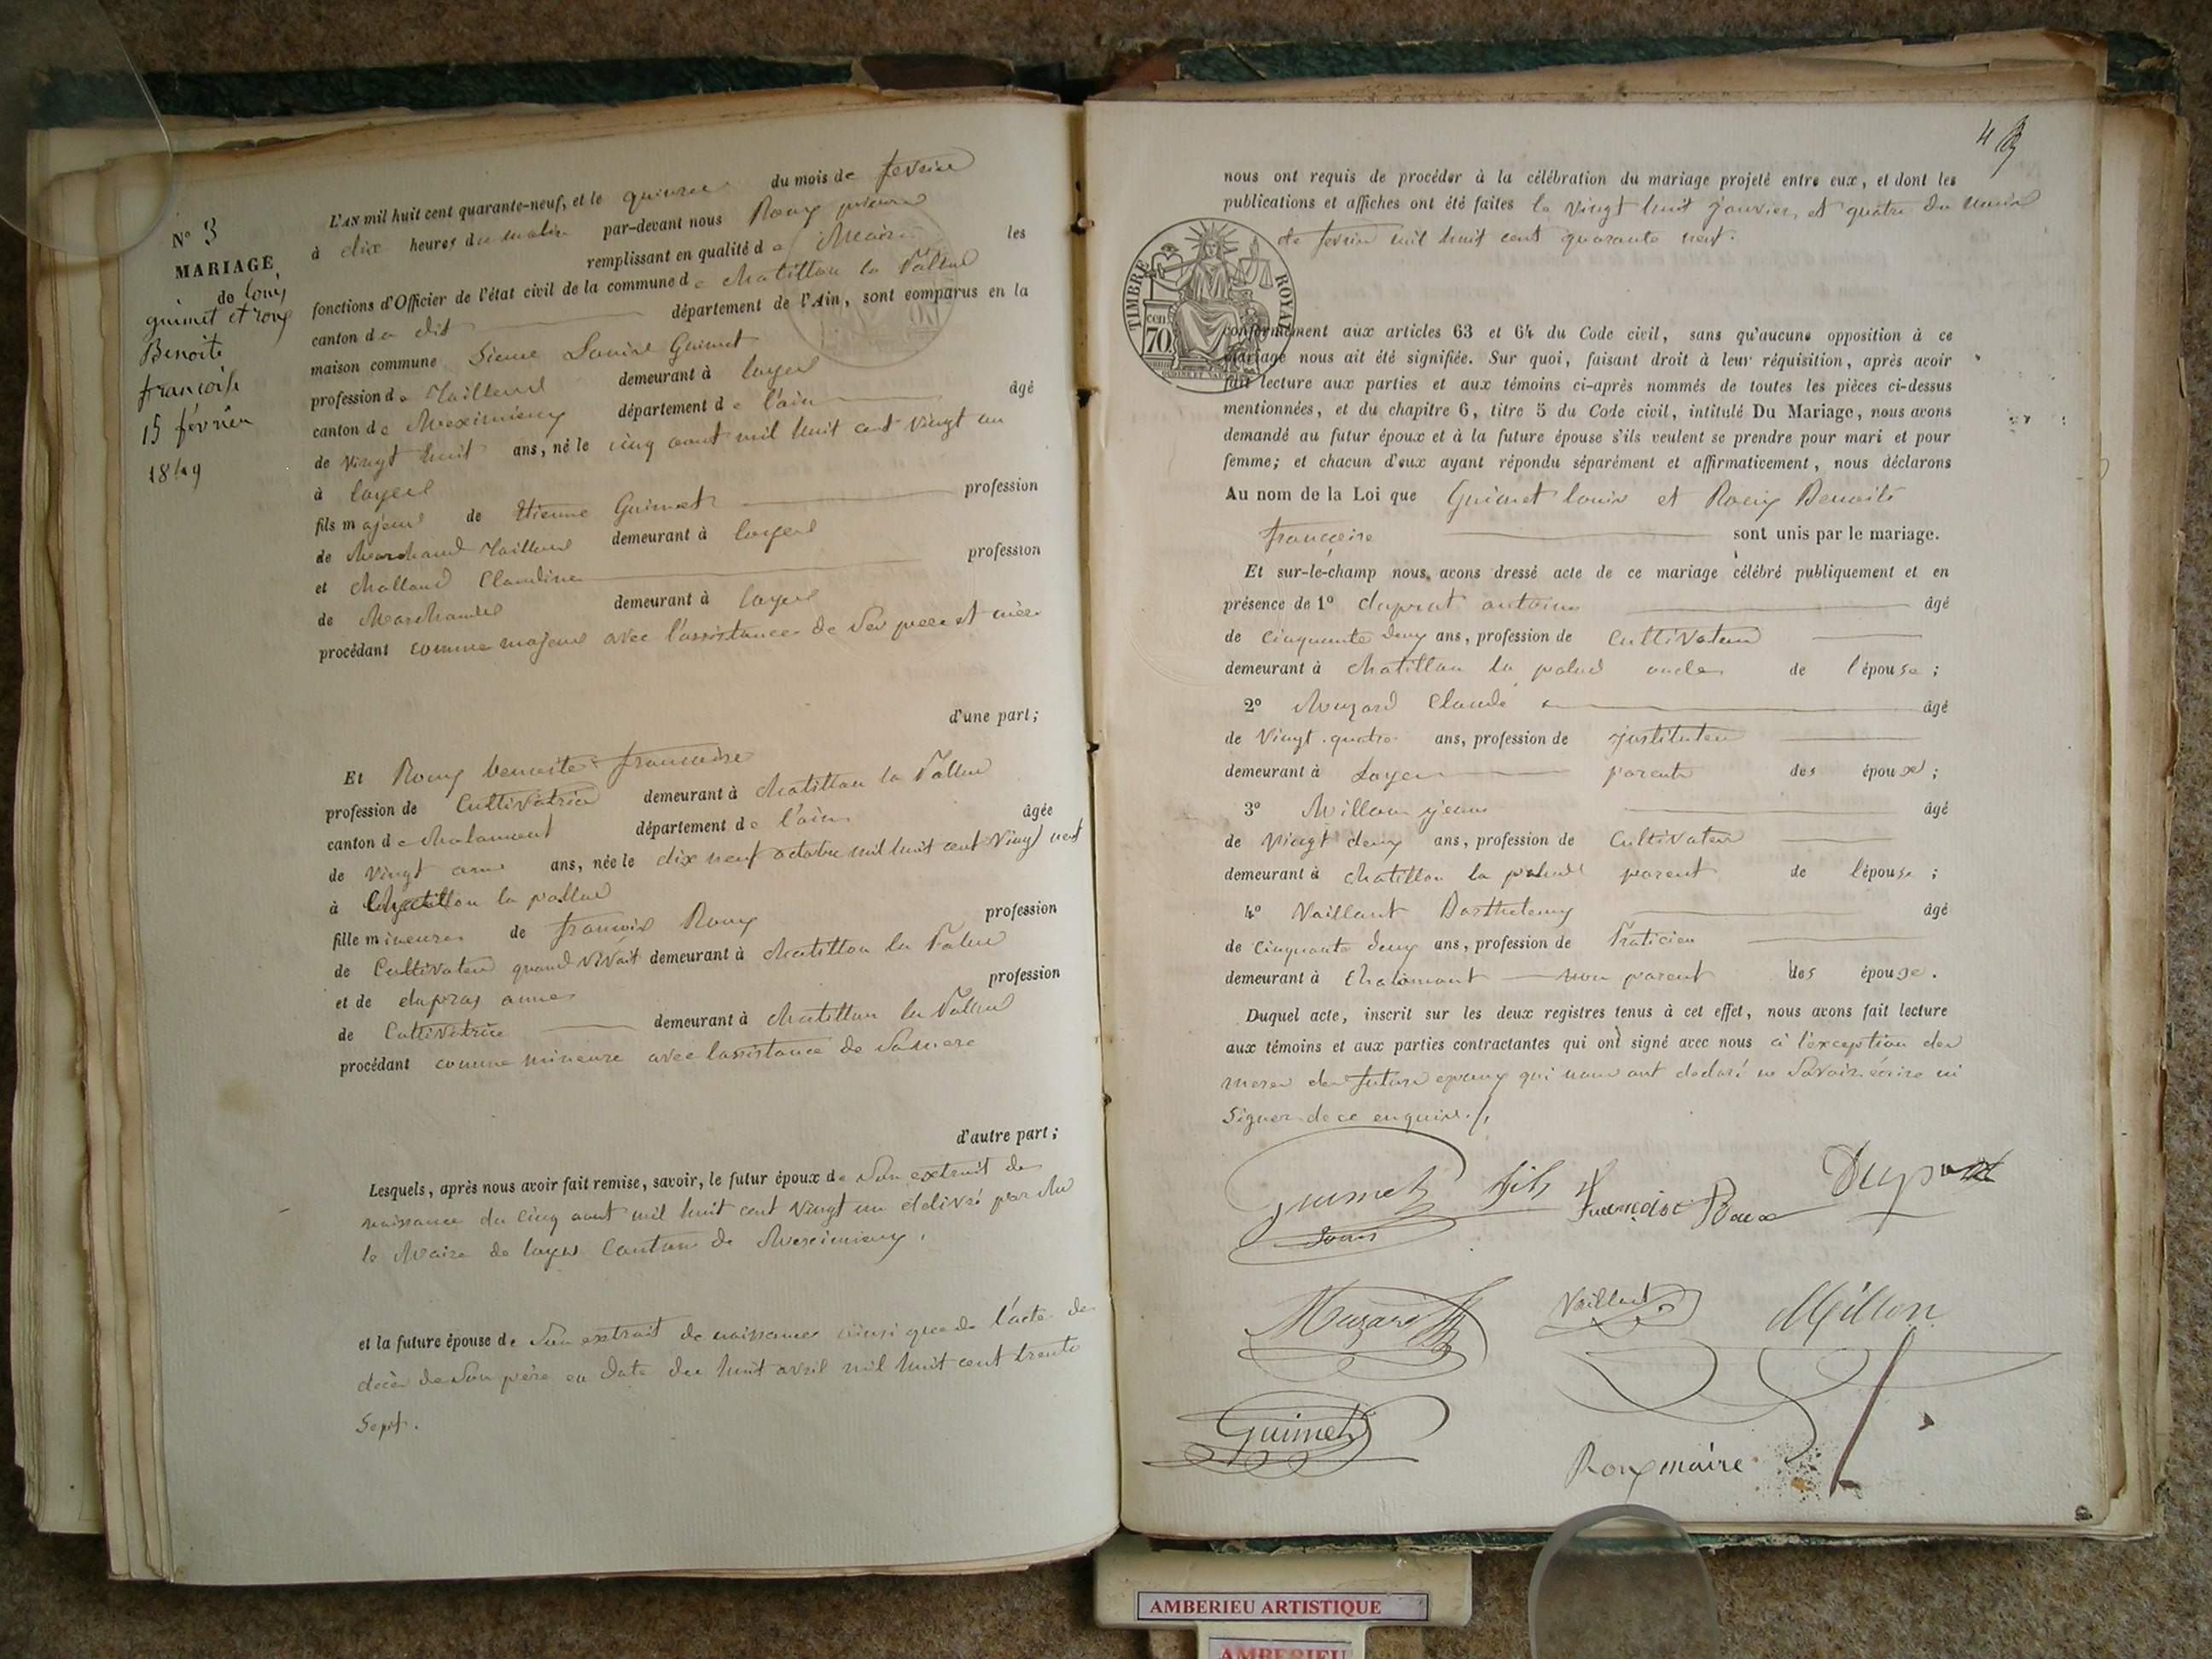 N° 3
MARIAGE
de louis
guimet et roux
Benoite
francoise
15 février
1849
L'AN mil huit cent quarante-neuf, et le quinze du mois de fevrier
à dix heures du matin par-devant nous Roux pierre
remplissant en qualité de Maire les
fonctions d'Officier de l'état civil de la commune de chatillon la Pallud
canton du dit département de l'Ain, sont comparus en la
maison commune Sieur Louis Guimet
profession de Tailleur demeurant à loyes
canton de Meximieux département de l'ain âgé
de vingt huit ans, né le cinq aout mil huit cent vingt un
à loyes
fils majeur de Etienne Guimet profession
de Marchand Tailleur demeurant à loyes
et Molland Claudine profession
de Marchande demeurant à loyes
procédant comme majeur avec l'assistance de Ses pere et mère
d'une part;
Et Roux benoite francoise
profession de Cultivatrice demeurant à chatillon la Pallud
canton de chalamont département de l'ain âgée
de vingt ans, née le dix neuf octobre mil huit cent vingt neuf
à Chatillon la pallud
fille mineure de francois Roux profession
de Cultivateur quand vivait demeurant à chatillon la Palud
et de dupras anne profession
de Cultivatrice demeurant à chatillon la Pallud
procédant comme mineure avec lassistance de Sa mere
d'autre part;
Lesquels, après nous avoir fait remise, savoir, le futur époux de Son extrait de
naissance du cinq aout mil huit cent vingt un délivré par
le Maire de loyes Canton de Meximieux.
et la future épouse de Son extrait de naissance ainsi que de l'acte de
décès de Son père en date du huit avril mil huit cent trente
Sept.
4
nous ont requis de procéder à la célébration du mariage projeté entre eux, et dont les
publications et affiches ont été faites le vingt huit janvier, et quatre du mois
de fevrier mil huit cent quarante neuf.
TIMBRE ROYAL
70 cen.
conformément aux articles 63 et 64 du Code civil, sans qu'aucune opposition à ce
mariage nous ait été signifiée. Sur quoi, faisant droit à leur réquisition, après avoir
fait lecture aux parties et aux témoins ci-après nommés de toutes les pièces ci-dessus
mentionnées, et du chapitre 6, titre 5 du Code civil, intitulé Du Mariage, nous avons
demandé au futur époux et à la future épouse s'ils veulent se prendre pour mari et pour
femme; et chacun d'eux ayant répondu séparément et affirmativement, nous déclarons
Au nom de la Loi que Guimet louis et Roux Benoite
francoise sont unis par le mariage.
Et sur-le-champ nous avons dressé acte de ce mariage célébré publiquement et en
présence de 1° duprat antoine âgé
de cinquante deux ans, profession de Cultivateur
demeurant à chatillon la palud oncle de l'épouse;
2° Muzard Claude âgé
de vingt quatre ans, profession de jnstituteur
demeurant à Loyes parent des époux;
3° Millon jean âgé
de vingt deux ans, profession de Cultivateur
demeurant à chatillon la palud parent de lépouse;
4° Vaillant Barthelemy âgé
de cinquante deux ans, profession de Praticien
demeurant à Chalamont non parent des époux.
Duquel acte, inscrit sur les deux registres tenus à cet effet, nous avons fait lecture
aux témoins et aux parties contractantes qui ont signé avec nous à l'exception des
meres des futurs epoux qui nous ont declaré ne Savoir écrire ni
Signer de ce enquise.
Guimet fils Françoise Roux Duprat
Louis
Muzard Vaillant Millon
Guimet
Roux maire
AMBERIEU ARTISTIQUE
AMBERIEU